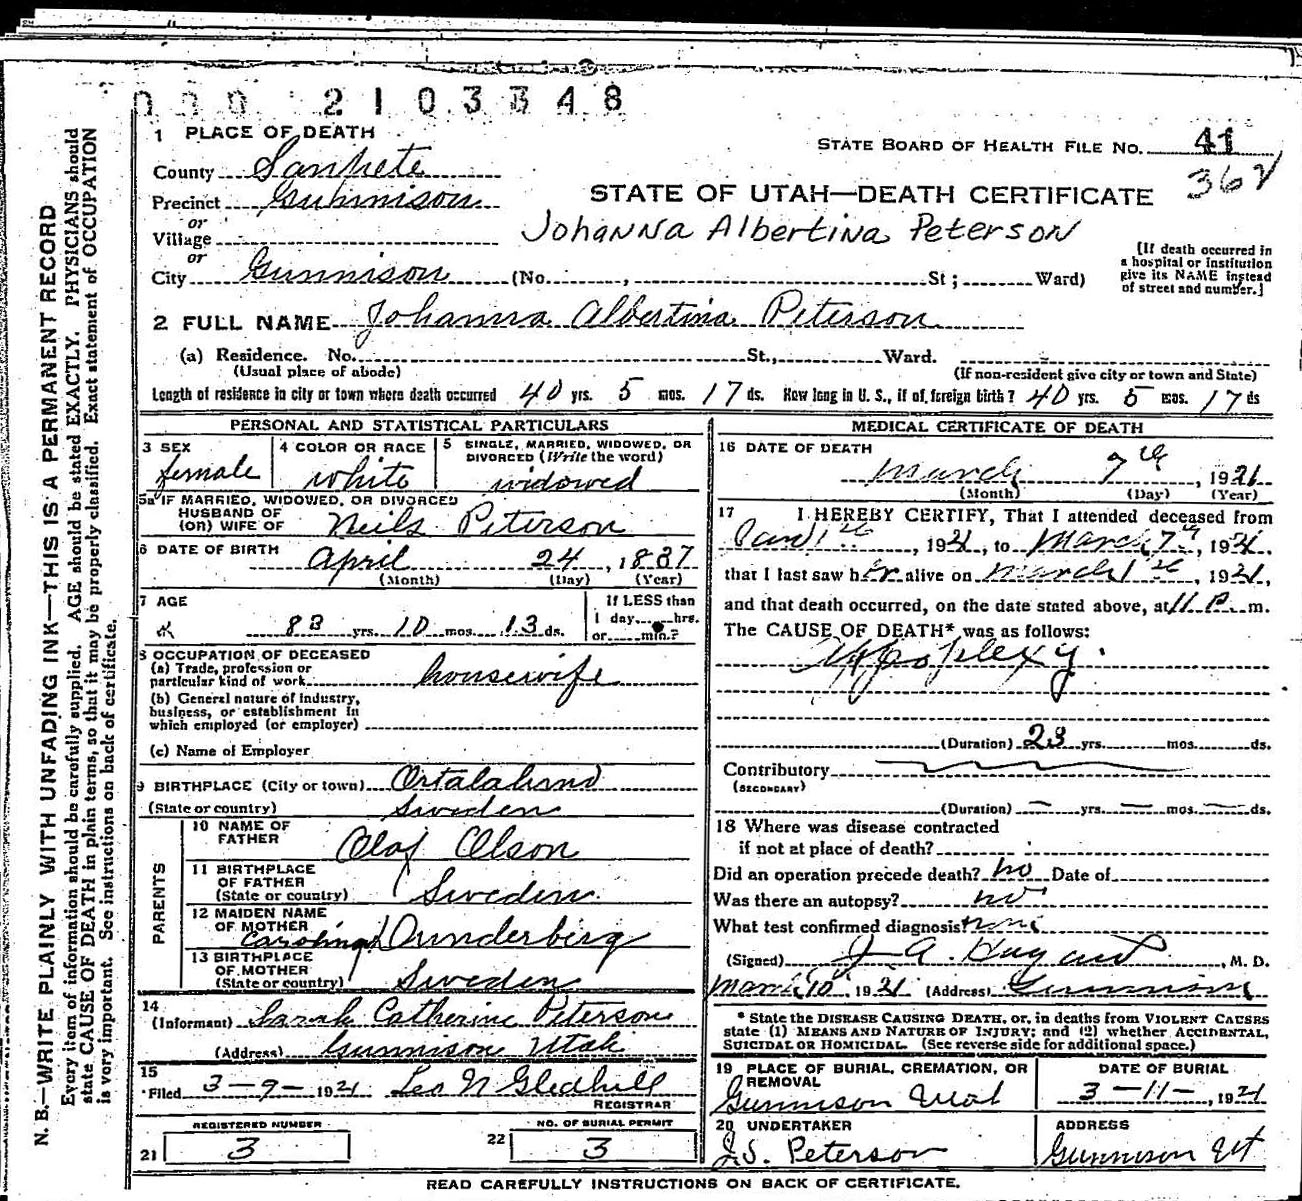 000 2103348
1 PLACE OF DEATH
STATE BOARD OF HEALTH FILE NO. 41
County Sanpete
362
Precinct Gunnison
STATE OF UTAH—DEATH CERTIFICATE
or
Village
Johanna Albertina Peterson
or
City Gunnison (No. , St; Ward)
[If death occurred in
a hospital or institution
give its NAME instead
of street and number.]
2 FULL NAME Johanna Albertina Peterson
(a) Residence. No. St., Ward.
(Usual place of abode)
(If non-resident give city or town and State)
Length of residence in city or town where death occurred 40 yrs. 5 mos. 17 ds. How long in U. S., if of foreign birth? 40 yrs. 5 mos. 17 ds
PERSONAL AND STATISTICAL PARTICULARS
3 SEX
female
4 COLOR OR RACE
white
5 SINGLE, MARRIED, WIDOWED, OR
DIVORCED (Write the word)
widowed
5a IF MARRIED, WIDOWED, OR DIVORCED
HUSBAND OF
(OR) WIFE OF Neils Peterson
6 DATE OF BIRTH
April 24, 1837
(Month) (Day) (Year)
7 AGE
83 yrs. 10 mos. 13 ds.
If LESS than
1 day hrs.
or min.?
8 OCCUPATION OF DECEASED
(a) Trade, profession or
particular kind of work housewife
(b) General nature of industry,
business, or establishment in
which employed (or employer)
(c) Name of Employer
9 BIRTHPLACE (City or town) Ortalahand
(State or country) Sweden
PARENTS
10 NAME OF
FATHER Olof Olson
11 BIRTHPLACE
OF FATHER
(State or country) Sweden
12 MAIDEN NAME
OF MOTHER
Dunderberg
13 BIRTHPLACE
OF MOTHER
(State or country) Sweden
14
(Informant) Sarah Catherine Peterson
(Address) Gunnison Utah
15
Filed 3-9- 1921 Leo N Gledhill
REGISTRAR
REGISTERED NUMBER
21 3
NO. OF BURIAL PERMIT
22 3
MEDICAL CERTIFICATE OF DEATH
16 DATE OF DEATH
March 7th, 1921
(Month) (Day) (Year)
17 I HEREBY CERTIFY, That I attended deceased from
, 1921, to March 7th, 1921.
that I last saw her alive on March 1st, 1921,
and that death occurred, on the date stated above, at 11 P. m.
The CAUSE OF DEATH* was as follows:
Appoplexy.
(Duration) 23 yrs. mos. ds.
Contributory
(SECONDARY)
(Duration) — yrs. — mos. — ds.
18 Where was disease contracted
if not at place of death?
Did an operation precede death? no Date of
Was there an autopsy? no
What test confirmed diagnosis? none
(Signed) J. A. Hagan, M. D.
March 10, 1921 (Address) Gunnison
* State the DISEASE CAUSING DEATH, or, in deaths from VIOLENT CAUSES
state (1) MEANS AND NATURE OF INJURY; and (2) whether ACCIDENTAL,
SUICIDAL OR HOMICIDAL. (See reverse side for additional space.)
19 PLACE OF BURIAL, CREMATION, OR
REMOVAL
Gunnison Utah
DATE OF BURIAL
3-11-, 1921
20 UNDERTAKER
J.S. Peterson
ADDRESS
Gunnison Ut
READ CAREFULLY INSTRUCTIONS ON BACK OF CERTIFICATE.
N. B.—WRITE PLAINLY WITH UNFADING INK—THIS IS A PERMANENT RECORD
Every item of information should be carefully supplied. AGE should be stated EXACTLY. PHYSICIANS should
state CAUSE OF DEATH in plain terms, so that it may be properly classified. Exact statement of OCCUPATION
is very important. See instructions on back of certificate.